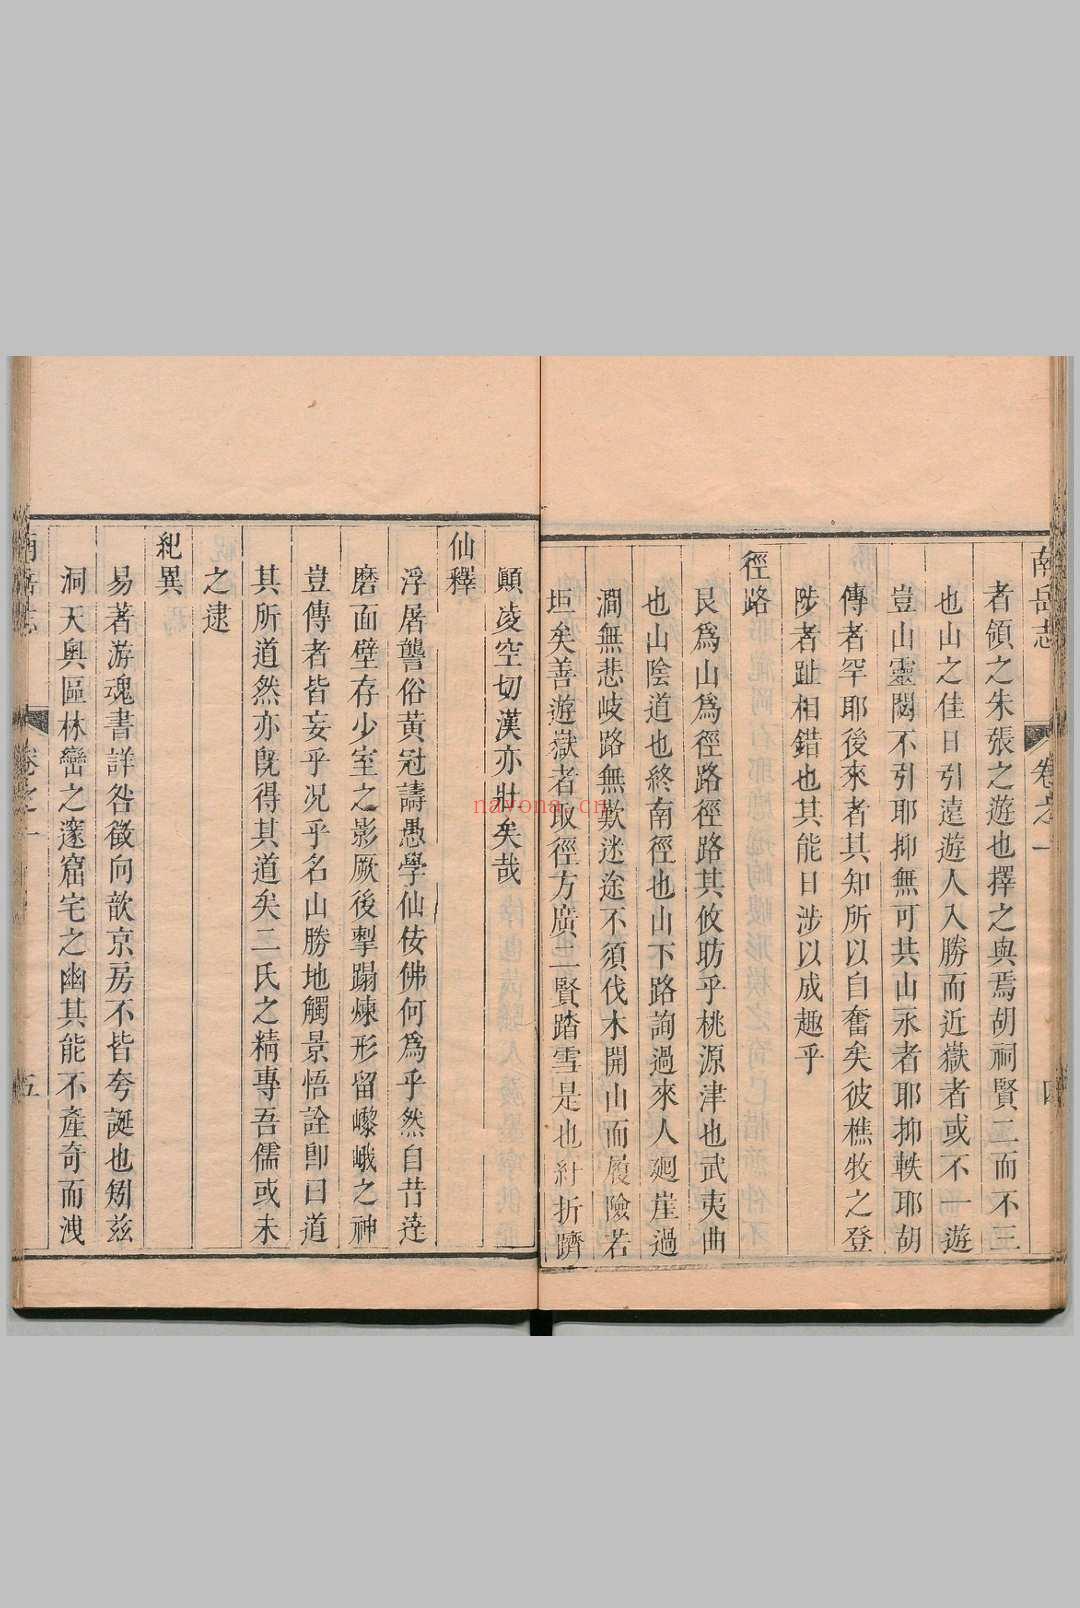 南岳志 卷之一 四
者領之朱張之遊也擇之與焉胡祠賢二而不三
也山之佳日引遠遊人入勝而近嶽者或不一遊
豈山靈閟不引耶抑無可共山永者耶抑軼耶胡
傳者罕耶後來者其知所以自奮矣彼樵牧之登
陟者趾相錯也其能日涉以成趣乎
徑路
艮爲山爲徑路徑路其攸昉乎桃源津也武夷曲
也山陰道也終南徑也山下路詢過來人廻崖過
澗無悲岐路無歎迷途不須伐木開山而履險若
垣矣善遊嶽者取徑方廣二賢踏雪是也紆折躋
顚凌空切漢亦壯矣哉
仙釋
浮屠讋俗黃冠譸愚學仙佞佛何爲乎然自昔達
磨面壁存少室之影厥後掣蹋煉形留巎峨之神
豈傳者皆妄乎况乎名山勝地觸景悟詮卽曰道
其所道然亦旣得其道矣二氏之精專吾儒或未
之逮
紀異
易著游魂書詳咎徵向歆京房不皆夸誕也矧茲
洞天奧區林巒之邃窟宅之幽其能不產奇而洩
南嶽志 卷之一 五
nayona.cn